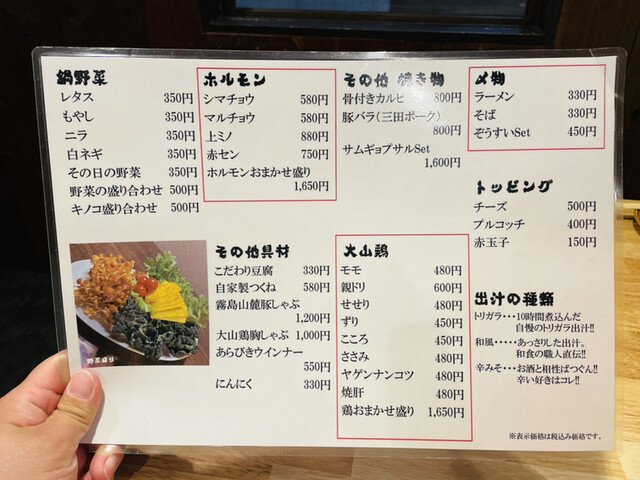 鍋野菜
レタス 350円
もやし 350円
ニラ 350円
白ネギ 350円
その日の野菜 350円
野菜の盛り合わせ 500円
キノコ盛り合わせ 500円
ホルモン
シマチョウ 580円
マルチョウ 580円
上ミノ 880円
赤セン 750円
ホルモンおまかせ盛り
1,650円
その他 焼き物
骨付きカルビ 800円
豚バラ(三田ポーク)
800円
サムギョプサルSet
1,600円
〆物
ラーメン 330円
そば 330円
ぞうすいSet 450円
トッピング
チーズ 500円
プルコッチ 400円
赤玉子 150円
野菜盛り
その他具材
こだわり豆腐 330円
自家製つくね 580円
霧島山麓豚しゃぶ
1,200円
大山鶏胸しゃぶ 1,000円
あらびきウインナー
550円
にんにく 330円
大山鶏
モモ 480円
親ドリ 600円
せせり 480円
ずり 450円
こころ 450円
ささみ 480円
ヤゲンナンコツ 480円
焼肝 480円
鶏おまかせ盛り 1,650円
出汁の種類
トリガラ・・・10時間煮込んだ
自慢のトリガラ出汁!!
和風・・・・・あっさりした出汁。
和食の職人直伝!!
辛みそ・・・お酒と相性ばつぐん!!
辛い好きはコレ!!
※表示価格は税込み価格です。